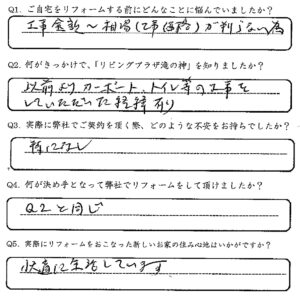 Q1. ご自宅をリフォームする前にどんなことに悩んでいましたか?
工事金額～相場(工事価格)が判らない為
Q2. 何がきっかけで、「リビングプラザ滝の神」を知りましたか?
以前よりカーポート、トイレ等の工事を
していただいた経緯有り
Q3. 実際に弊社でご契約を頂く際、どのような不安をお持ちでしたか?
特になし
Q4. 何が決め手となって弊社でリフォームをして頂けましたか?
Q2と同じ
Q5. 実際にリフォームをおこなった新しいお家の住み心地はいかがですか?
快適に生活しています